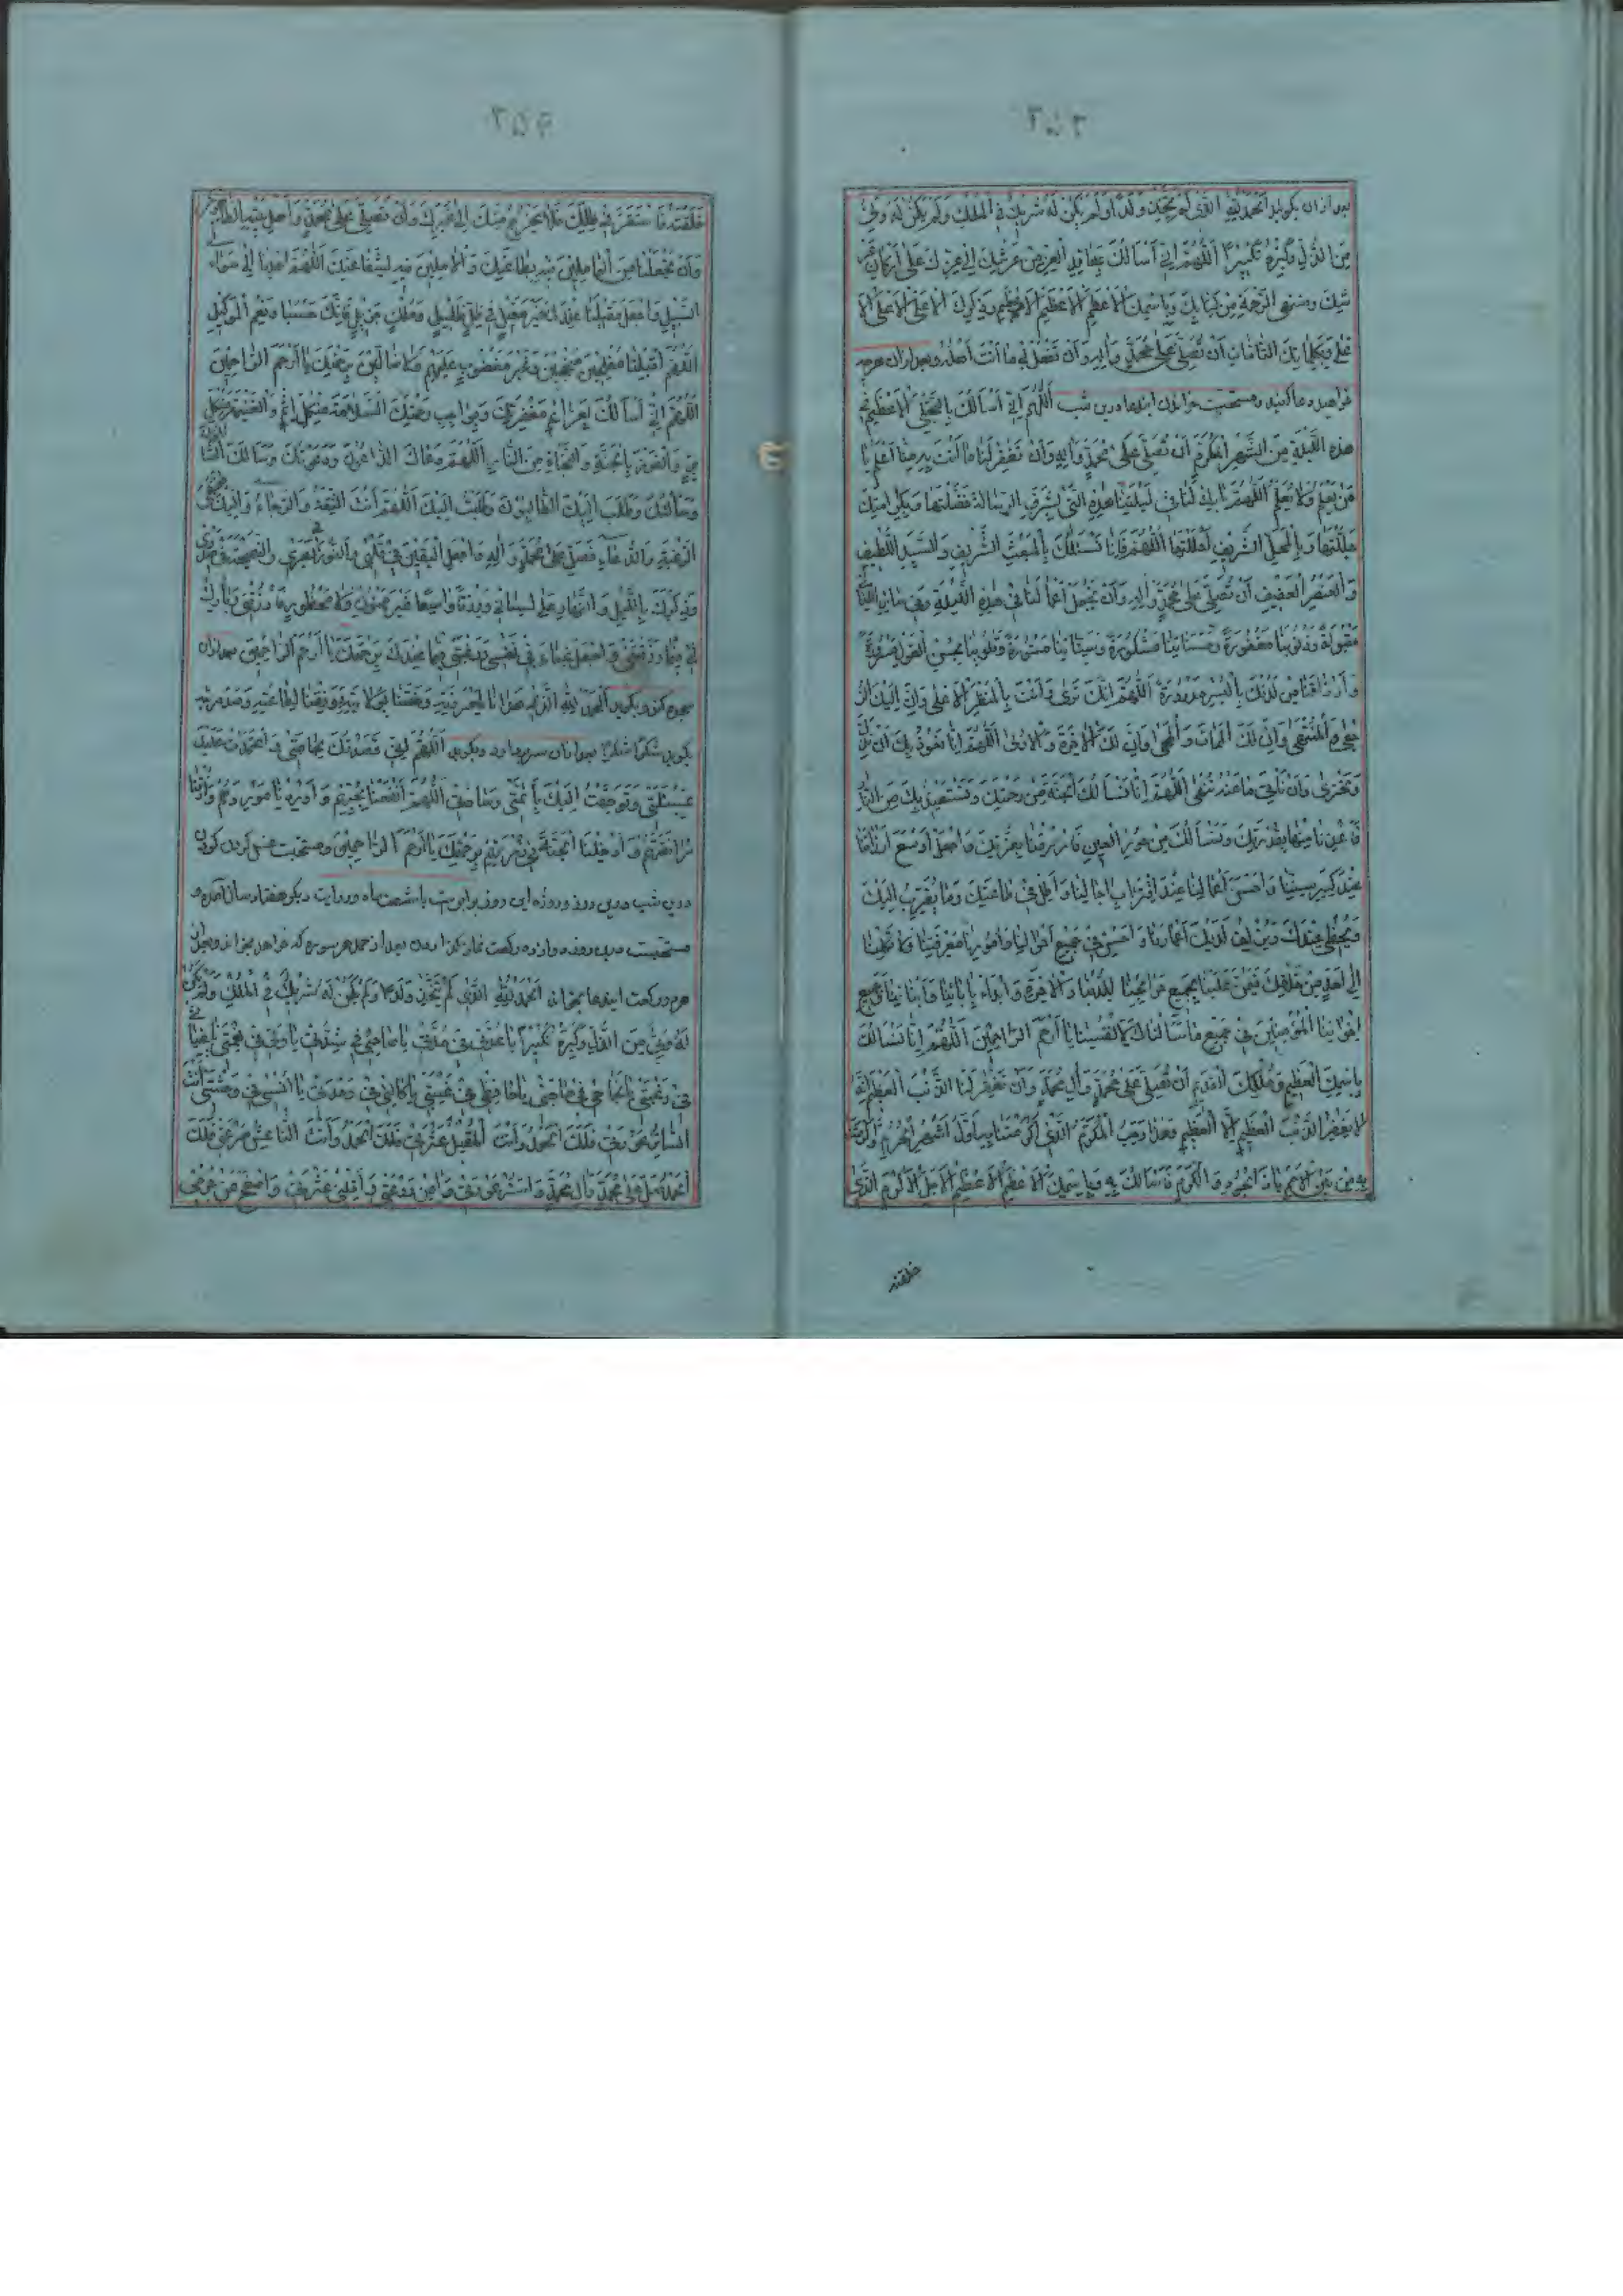 ۲۵۳
بعد ازان بکوید اَلْحَمْدُ لِلّٰهِ الَّذی لَمْ یَتَّخِذْ وَلَدًا وَلَمْ یَکُنْ لَهُ شَریكٌ فِی الْمُلْكِ وَلَمْ یَکُنْ لَهُ وَلِیٌّ
مِنَ الذُّلِّ وَکَبِّرْهُ تَکْبیرًا اَللّٰهُمَّ اِنّی اَسْاَلُكَ بِمَعاقِدِ الْعِزِّ مِنْ عَرْشِكَ عَلیٰ اَرْکانِ عَرْ
شِكَ وَمُنْتَهَی الرَّحْمَةِ مِنْ کِتابِكَ وَبِاسْمِكَ الْاَعْظَمِ الْاَعْظَمِ الْاَعْظَمِ وَذِکْرِكَ الْاَعْلَی الْاَعْلَی الْاَ
عْلیٰ وَبِکَلِماتِكَ التّامّاتِ اَنْ تُصَلِّیَ عَلیٰ مُحَمَّدٍ وَآلِهِ وَاَنْ تَفْعَلَ بی ما اَنْتَ اَهْلُهُ وبعد ازان هرچه
خواهد دعا کند ومستحبست خواندن ایندعا درین شب اَللّٰهُمَّ اِنّی اَسْاَلُكَ بِالتَّجَلِّی الْاَعْظَمِ فی
هٰذِهِ اللَّیْلَةِ مِنَ الشَّهْرِ الْمُکَرَّمِ اَنْ تُصَلِّیَ عَلیٰ مُحَمَّدٍ وَآلِهِ وَاَنْ تَغْفِرَ لَنا ما اَنْتَ بِهِ مِنّا اَعْلَمُ یا
مَنْ یَعْلَمُ وَلا نَعْلَمُ اَللّٰهُمَّ بارِكْ لَنا فی لَیْلَتِنا هٰذِهِ الَّتی بِشَرَفِ الرِّسالَةِ فَضَّلْتَها وَبِکَرامَتِكَ
جَلَّلْتَها وَبِالْمَحَلِّ الشَّریفِ اَحْلَلْتَها اَللّٰهُمَّ فَاِنّا نَسْئَلُكَ بِالْمَبْعَثِ الشَّریفِ وَالسَّیِّدِ اللَّطیفِ
وَالْعُنْصُرِ الْعَفیفِ اَنْ تُصَلِّیَ عَلیٰ مُحَمَّدٍ وَآلِهِ وَاَنْ تَجْعَلَ اَعْمالَنا فی هٰذِهِ اللَّیْلَةِ وَفی سایِرِ اللَّیالی
مَقْبُولَةً وَذُنُوبَنا مَغْفُورَةً وَحَسَناتِنا مَشْکُورَةً وَسَیِّئاتِنا مَسْتُورَةً وَقُلُوبَنا بِحُسْنِ الْقَوْلِ مَسْرُورَةً
وَاَرْزاقَنا مِنْ لَدُنْكَ بِالْیُسْرِ مَدْرُورَةً اَللّٰهُمَّ اِنَّكَ تَریٰ وَلا تُریٰ وَاَنْتَ بِالْمَنْظَرِ الْاَعْلیٰ وَاِنَّ اِلَیْكَ الرُّ
جْعیٰ وَالْمُنْتَهیٰ وَاِنَّ لَكَ الْمَماتَ وَالْمَحْیا وَاِنَّ لَكَ الْآخِرَةَ وَالْاُولیٰ اَللّٰهُمَّ اِنّا نَعُوذُ بِكَ اَنْ نَذِلَّ
وَنَخْزیٰ وَاَنْ نَأْتِیَ ما عَنْهُ تَنْهیٰ اَللّٰهُمَّ اِنّا نَسْاَلُكَ الْجَنَّةَ بِرَحْمَتِكَ وَنَسْتَعیذُ بِكَ مِنَ النّارِ
فَاَعِذْنا مِنْها بِقُدْرَتِكَ وَنَسْاَلُكَ مِنَ الْحُورِ الْعینِ فَارْزُقْنا بِعِزَّتِكَ وَاجْعَلْ اَوْسَعَ اَرْزاقِنا
عِنْدَ کِبَرِ سِنِّنا وَاَحْسَنَ اَعْمالِنا عِنْدَ اقْتِرابِ آجالِنا وَاَطِلْ فی طاعَتِكَ وَما یُقَرِّبُ اِلَیْكَ
وَیُحْظی عِنْدَكَ وَیُزْلِفُ لَدَیْكَ اَعْمارَنا وَاَحْسِنْ فی جَمیعِ اَحْوالِنا وَاُمُورِنا مَعْرِفَتَنا وَلا تَکِلْنا
اِلیٰ اَحَدٍ مِنْ خَلْقِكَ فَیَمُنَّ عَلَیْنا بِجَمیعِ حَوائِجِنا لِلدُّنْیا وَالْآخِرَةِ وَابْدَأْ بِآبائِنا وَاَبْنائِنا وَجَمیعِ
اِخْوانِنَا الْمُؤْمِنینَ فی جَمیعِ ما سَاَلْناكَ لِاَنْفُسِنا یا اَرْحَمَ الرّاحِمینَ اَللّٰهُمَّ اِنّا نَسْاَلُكَ
بِاسْمِكَ الْعَظیمِ وَمُلْکِكَ الْقَدیمِ اَنْ تُصَلِّیَ عَلیٰ مُحَمَّدٍ وَآلِ مُحَمَّدٍ وَاَنْ تَغْفِرَ لَنَا الذَّنْبَ الْعَظیمَ اِنَّهُ
لا یَغْفِرُ الذَّنْبَ الْعَظیمَ اِلَّا الْعَظیمُ وَهٰذا رَجَبُ الْمُکَرَّمُ الَّذی اَکْرَمْتَنا بِهِ اَوَّلُ اَشْهُرِ الْحُرُمِ اَکْرَمْتَنا
بِهِ مِنْ بَیْنِ الْاُمَمِ یا ذَا الْجُودِ وَالْکَرَمِ فَنَسْاَلُكَ بِهِ وَبِاسْمِكَ الْاَعْظَمِ الْاَعْظَمِ الْاَجَلِّ الْاَکْرَمِ الَّذی
خلقته
۲۵۴
خَلَقْتَهُ فَاسْتَقَرَّ فی ظِلِّكَ فَلا یَخْرُجُ مِنْكَ اِلیٰ غَیْرِكَ وَاَنْ تُصَلِّیَ عَلیٰ مُحَمَّدٍ وَاَهْلِ بَیْتِهِ الطّاهِرینَ
وَاَنْ تَجْعَلَنا مِنَ الْعامِلینَ فیهِ بِطاعَتِكَ وَالْآمِلینَ فیهِ لِشَفاعَتِكَ اَللّٰهُمَّ اهْدِنا اِلیٰ سَواءِ
السَّبیلِ وَاجْعَلْ مَقیلَنا عِنْدَكَ خَیْرَ مَقیلٍ فی ظِلٍّ ظَلیلٍ وَمُلْكٍ جَزیلٍ فَاِنَّكَ حَسْبُنا وَنِعْمَ الْوَکیلُ
اَللّٰهُمَّ اقْلِبْنا مُفْلِحینَ مُنْجِحینَ غَیْرَ مَغْضُوبٍ عَلَیْهِمْ وَلا ضالّینَ بِرَحْمَتِكَ یا اَرْحَمَ الرّاحِمینَ
اَللّٰهُمَّ اِنّی اَسْاَلُكَ بِعَزائِمِ مَغْفِرَتِكَ وَبِواجِبِ رَحْمَتِكَ السَّلامَةَ مِنْ کُلِّ اِثْمٍ وَالْغَنیمَةَ مِنْ کُلِّ
بِرٍّ وَالْفَوْزَ بِالْجَنَّةِ وَالنَّجاةَ مِنَ النّارِ اَللّٰهُمَّ دَعاكَ الدّاعُونَ وَدَعَوْتُكَ وَسَاَلَكَ السّائِلُونَ
وَسَاَلْتُكَ وَطَلَبَ اِلَیْكَ الطّالِبُونَ وَطَلَبْتُ اِلَیْكَ اَللّٰهُمَّ اَنْتَ الثِّقَةُ وَالرَّجاءُ وَاِلَیْكَ مُنْتَهَی
الرَّغْبَةِ وَالدُّعاءِ فَصَلِّ عَلیٰ مُحَمَّدٍ وَآلِهِ وَاجْعَلِ الْیَقینَ فی قَلْبی وَالنُّورَ فی بَصَری وَالنَّصیحَةَ فی صَدْری
وَذِکْرَكَ بِاللَّیْلِ وَالنَّهارِ عَلیٰ لِسانی وَرِزْقًا واسِعًا غَیْرَ مَمْنُونٍ وَلا مَحْظُورٍ فَارْزُقْنی وَبارِكْ
لی فیما رَزَقْتَنی وَاجْعَلْ غِنایَ فی نَفْسی وَرَغْبَتی فیما عِنْدَكَ بِرَحْمَتِكَ یا اَرْحَمَ الرّاحِمینَ بعد ازان
سجده کند وبکوید اَلْحَمْدُ لِلّٰهِ الَّذی هَدانا لِمَعْرِفَتِهِ وَخَصَّنا بِوِلایَتِهِ وَوَفَّقَنا لِطاعَتِهِ وصد مرتبه
بکوید شُکْرًا شُکْرًا بعد ازان سر بردارد وبکوید اَللّٰهُمَّ اِنّی قَصَدْتُكَ بِحاجَتی وَاعْتَمَدْتُ عَلَیْكَ
بِمَسْئَلَتی وَتَوَجَّهْتُ اِلَیْكَ بِاَئِمَّتی وَسادَتی اَللّٰهُمَّ انْفَعْنا بِحُبِّهِمْ وَاَوْرِدْنا مَوْرِدَهُمْ وَارْزُقْنا
مُرافَقَتَهُمْ وَاَدْخِلْنَا الْجَنَّةَ فی زُمْرَتِهِمْ بِرَحْمَتِكَ یا اَرْحَمَ الرّاحِمینَ ومستحبست غسل کردن
درین شب ودرین روز وروزه این روز برابرست با شصت ماه وروایت دیکر هفتاد سال آمده و
مستحبست درین روز دوازده رکعت نماز کذاردن بعد از حمد هر سوره که خواهد بخواند ومیان
هر دو رکعت ایندعا بخواند اَلْحَمْدُ لِلّٰهِ الَّذی لَمْ یَتَّخِذْ وَلَدًا وَلَمْ یَکُنْ لَهُ شَریكٌ فِی الْمُلْكِ وَلَمْ یَکُنْ
لَهُ وَلِیٌّ مِنَ الذُّلِّ وَکَبِّرْهُ تَکْبیرًا یا عُدَّتی فی مُدَّتی یا صاحِبی فی شِدَّتی یا وَلِیّی فی نِعْمَتی یا غِیاثی
فی رَغْبَتی یا نَجاحی فی حاجَتی یا حافِظی فی غَیْبَتی یا کالِئی فی وَحْدَتی یا اُنْسی فی وَحْشَتی اَنْتَ
السّاتِرُ عَوْرَتی فَلَكَ الْحَمْدُ وَاَنْتَ الْمُقیلُ عَثْرَتی فَلَكَ الْحَمْدُ وَاَنْتَ النّاعِشُ صَرْعَتی فَلَكَ
الْحَمْدُ صَلِّ عَلیٰ مُحَمَّدٍ وَآلِ مُحَمَّدٍ وَاسْتُرْ عَوْرَتی وَآمِنْ رَوْعَتی وَاَقِلْنی عَثْرَتی وَاصْفَحْ عَنْ جُرْمی